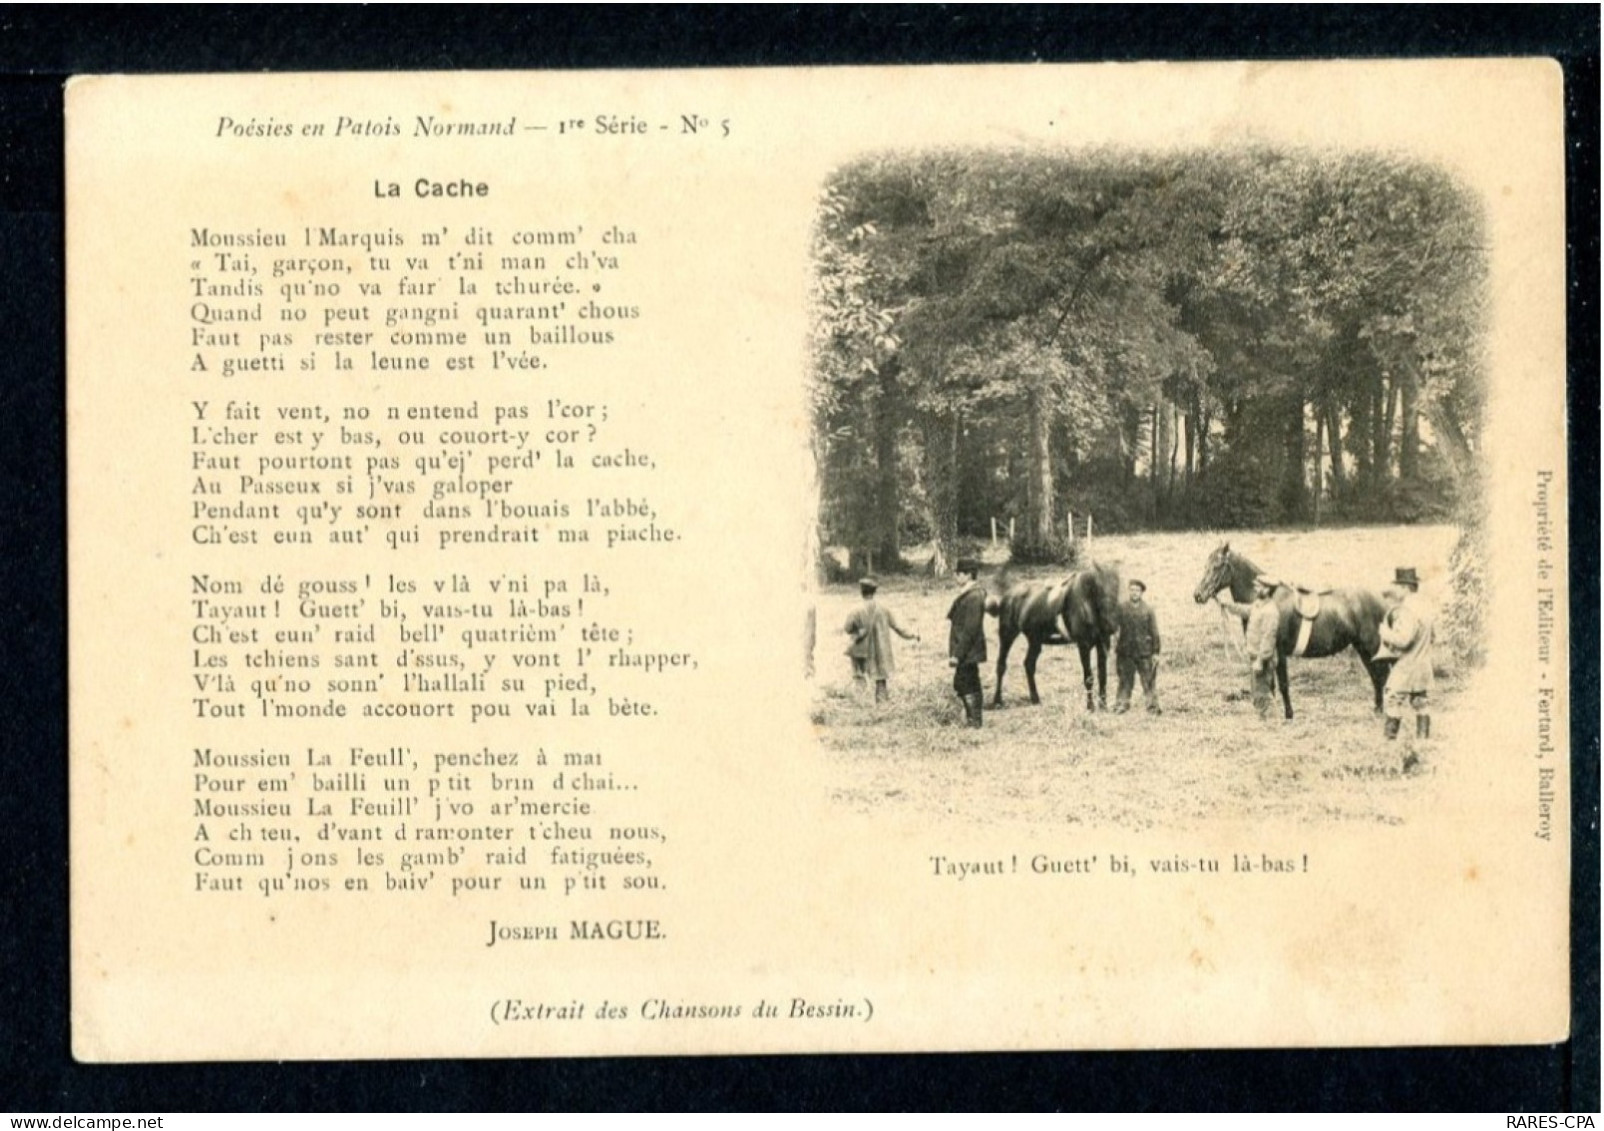 Poésies en Patois Normand — 1re Série - No 5
La Cache
Moussieu l'Marquis m' dit comm' cha
« Tai, garçon, tu va t'ni man ch'va
Tandis qu'no va fair' la tchurée. »
Quand no peut gangni quarant' chous
Faut pas rester comme un baillous
A guetti si la leune est l'vée.
Y fait vent, no n entend pas l'cor ;
L'cher est y bas, ou couort-y cor ?
Faut pourtont pas qu'ej' perd' la cache,
Au Passeux si j'vas galoper
Pendant qu'y sont dans l'bouais l'abbé,
Ch'est eun aut' qui prendrait ma piache.
Nom dé gouss ! les v là v'ni pa là,
Tayaut ! Guett' bi, vais-tu là-bas !
Ch'est eun' raid bell' quatrièm' tête ;
Les tchiens sant d'ssus, y vont l' rhapper,
V'là qu'no sonn' l'hallali su pied,
Tout l'monde accouort pou vai la bète.
Moussieu La Feull', penchez à mai
Pour em' bailli un p tit brin d chai...
Moussieu La Feuill' j'vo ar'mercie
A ch teu, d'vant d ramonter t'cheu nous,
Comm j ons les gamb' raid fatiguées,
Faut qu'nos en baiv' pour un p'tit sou.
Joseph MAGUE.
(Extrait des Chansons du Bessin.)
Tayaut ! Guett' bi, vais-tu là-bas !
Propriété de l'Editeur - Fertard, Balleroy
RARES-CPA